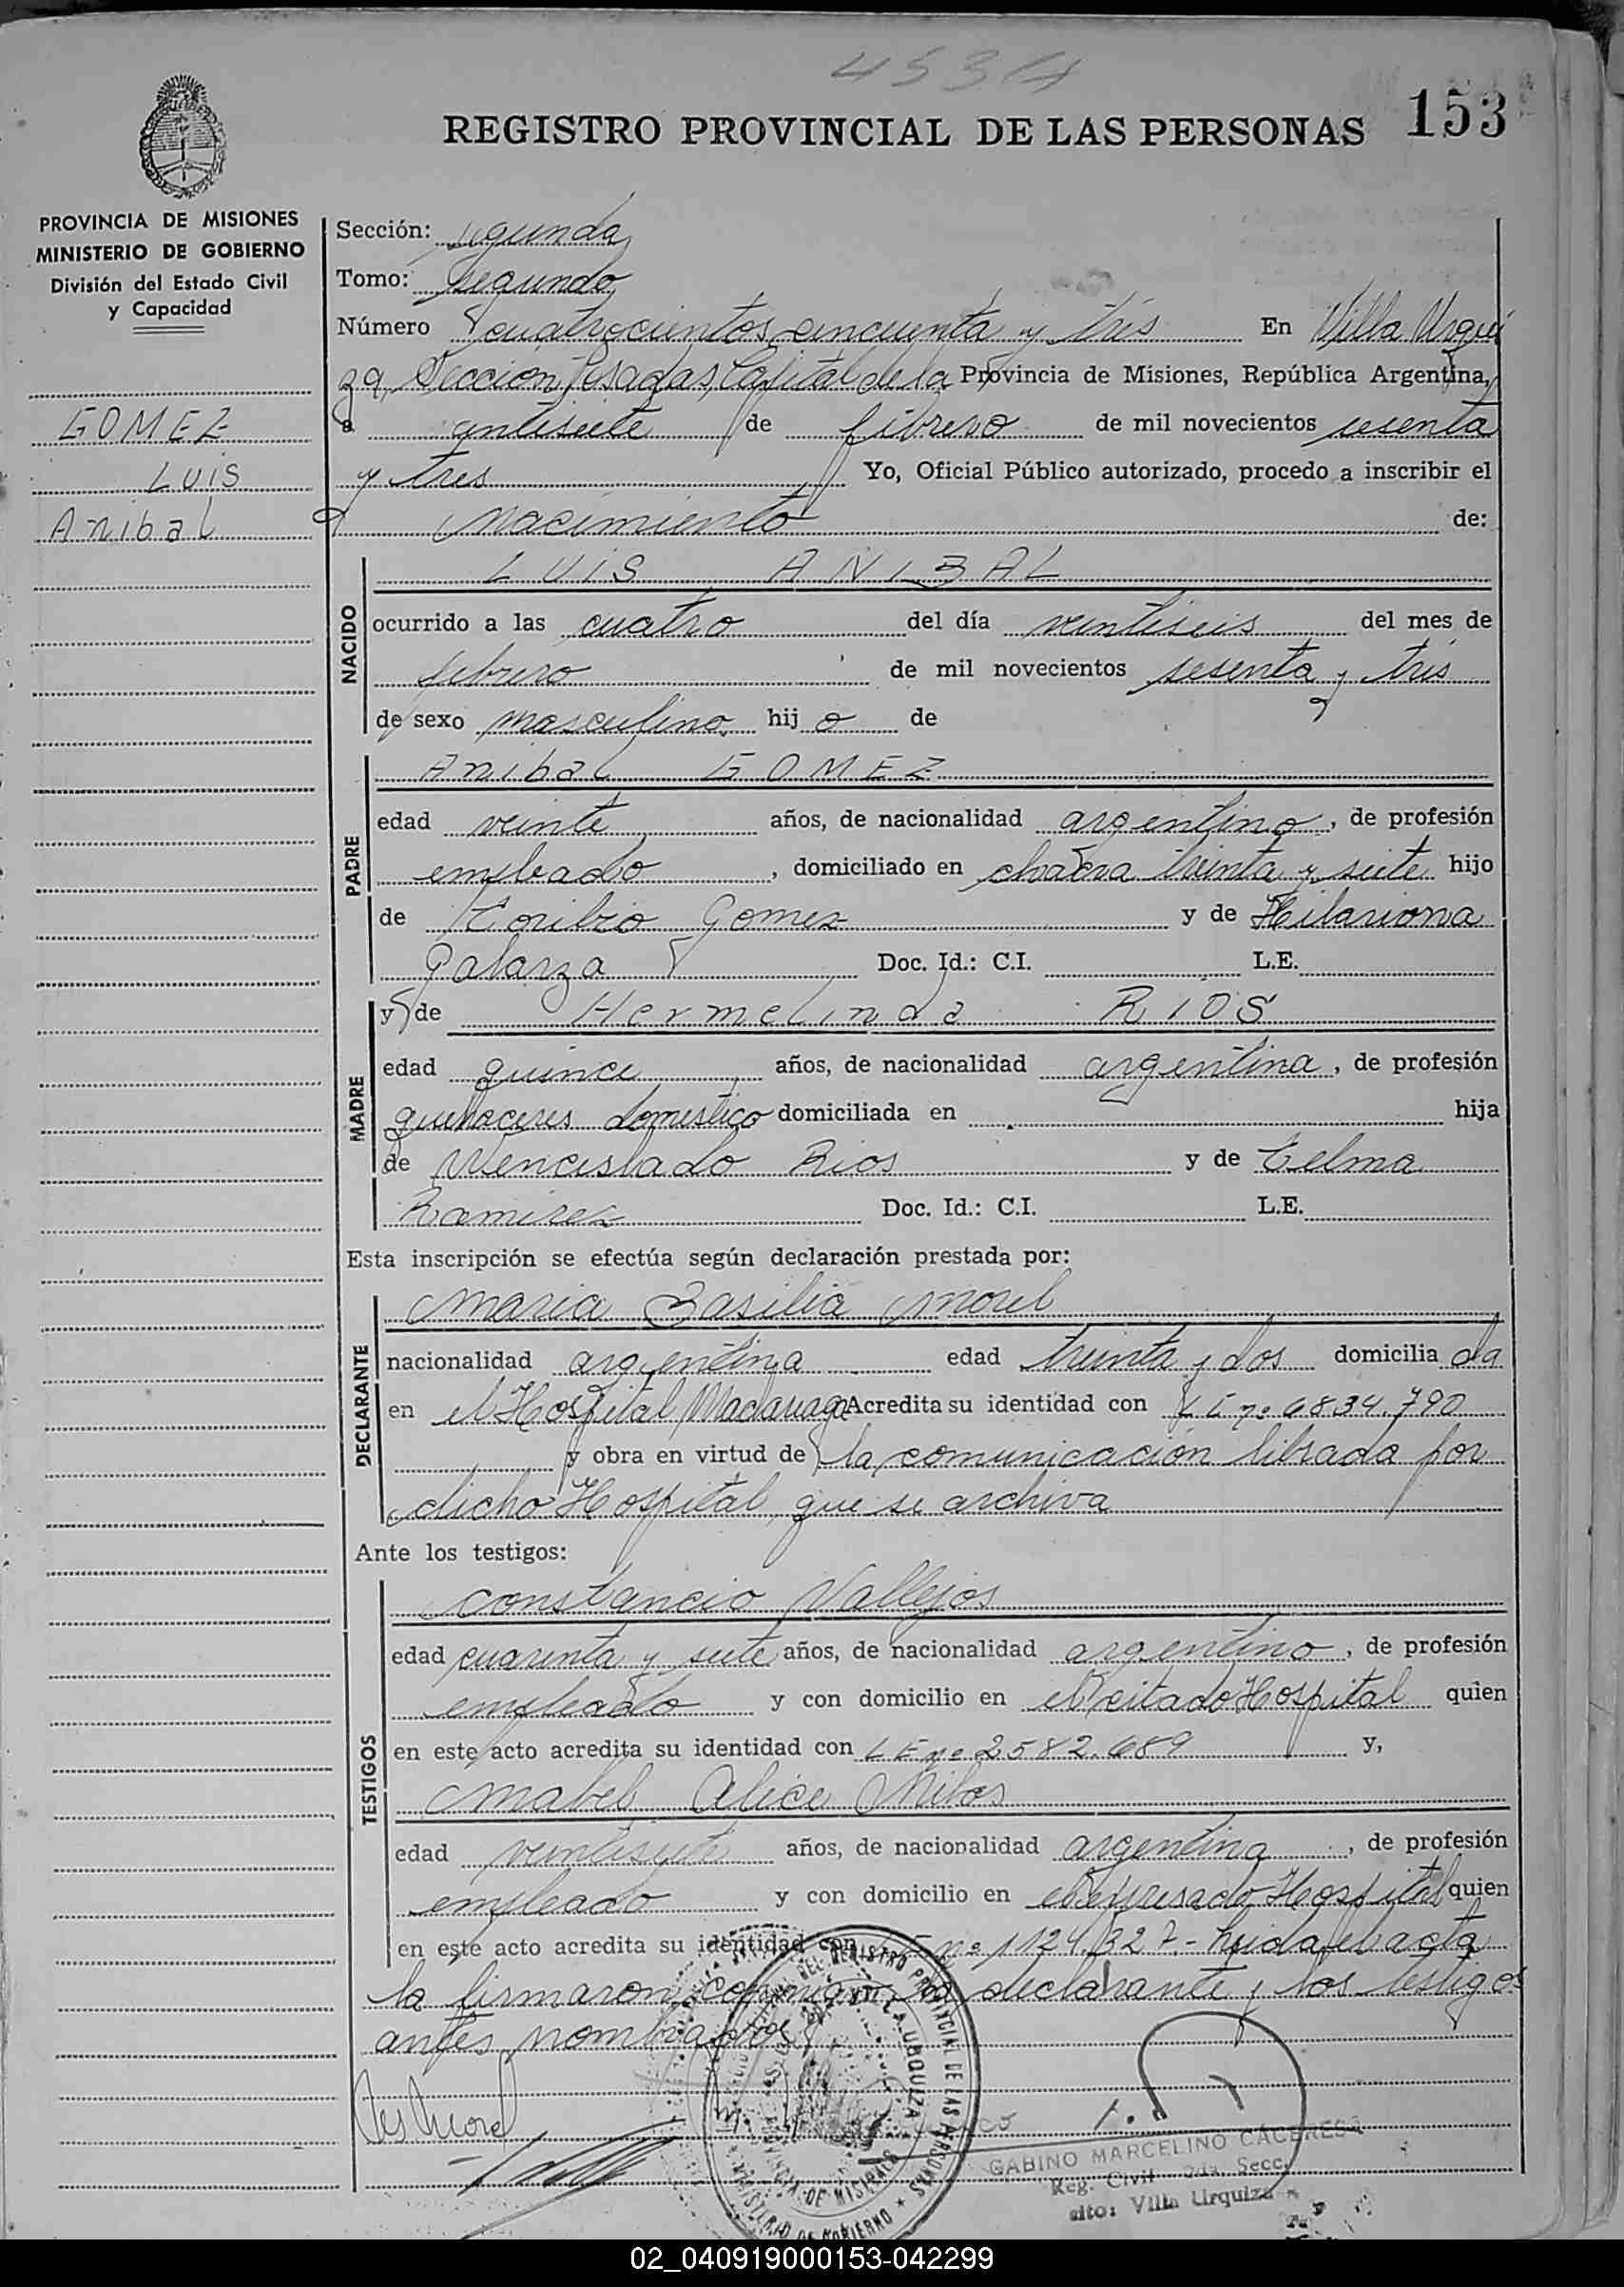 453
REGISTRO PROVINCIAL DE LAS PERSONAS 153
PROVINCIA DE MISIONES
MINISTERIO DE GOBIERNO
División del Estado Civil
y Capacidad
GOMEZ
LUIS
Anibal
Sección: segunda
Tomo: segundo
Número cuatrocientos cincuenta y tres En Villa Urqui
za, Sección Posadas, Capital de la Provincia de Misiones, República Argentina,
a entisiete de febrero de mil novecientos sesenta
y tres Yo, Oficial Público autorizado, procedo a inscribir el
nacimiento de:
NACIDO
LUIS ANIBAL
ocurrido a las cuatro del día veintiseis del mes de
febrero de mil novecientos sesenta y tres
de sexo masculino hij o de
PADRE
Anibal GOMEZ
edad veinte años, de nacionalidad argentino, de profesión
empleado, domiciliado en chacra treinta y siete hijo
de Toribio Gomez y de Hilariona
Galarza Doc. Id.: C.I. L.E.
MADRE
y de Hermelinda RIOS
edad quince años, de nacionalidad argentina, de profesión
quehaceres domestico domiciliada en hija
de Wenceslado Rios y de Telma
Ramirez Doc. Id.: C.I. L.E.
Esta inscripción se efectúa según declaración prestada por:
DECLARANTE
Maria Basilia Morel
nacionalidad argentina edad treinta y dos domicilia da
en el Hospital Madariaga Acredita su identidad con nº 6834.790
y obra en virtud de la comunicación librada por
dicho Hospital, que se archiva
Ante los testigos:
TESTIGOS
Constancio Vallejos
edad cuarenta y siete años, de nacionalidad argentino, de profesión
empleado y con domicilio en el citado Hospital quien
en este acto acredita su identidad con LE nº 2582.689 y,
Mabel Alice
edad veintisiete años, de nacionalidad argentina, de profesión
empleado y con domicilio en el expresado Hospital quien
en este acto acredita su identidad con nº 1124.327.- Leida el acta
la firmaron conmigo la declarante y los testigos
antes nombrados
Morel
GABINO MARCELINO CACERES
Reg. Civil 2da. Secc.
dito: Villa Urquiza
02_040919000153-042299